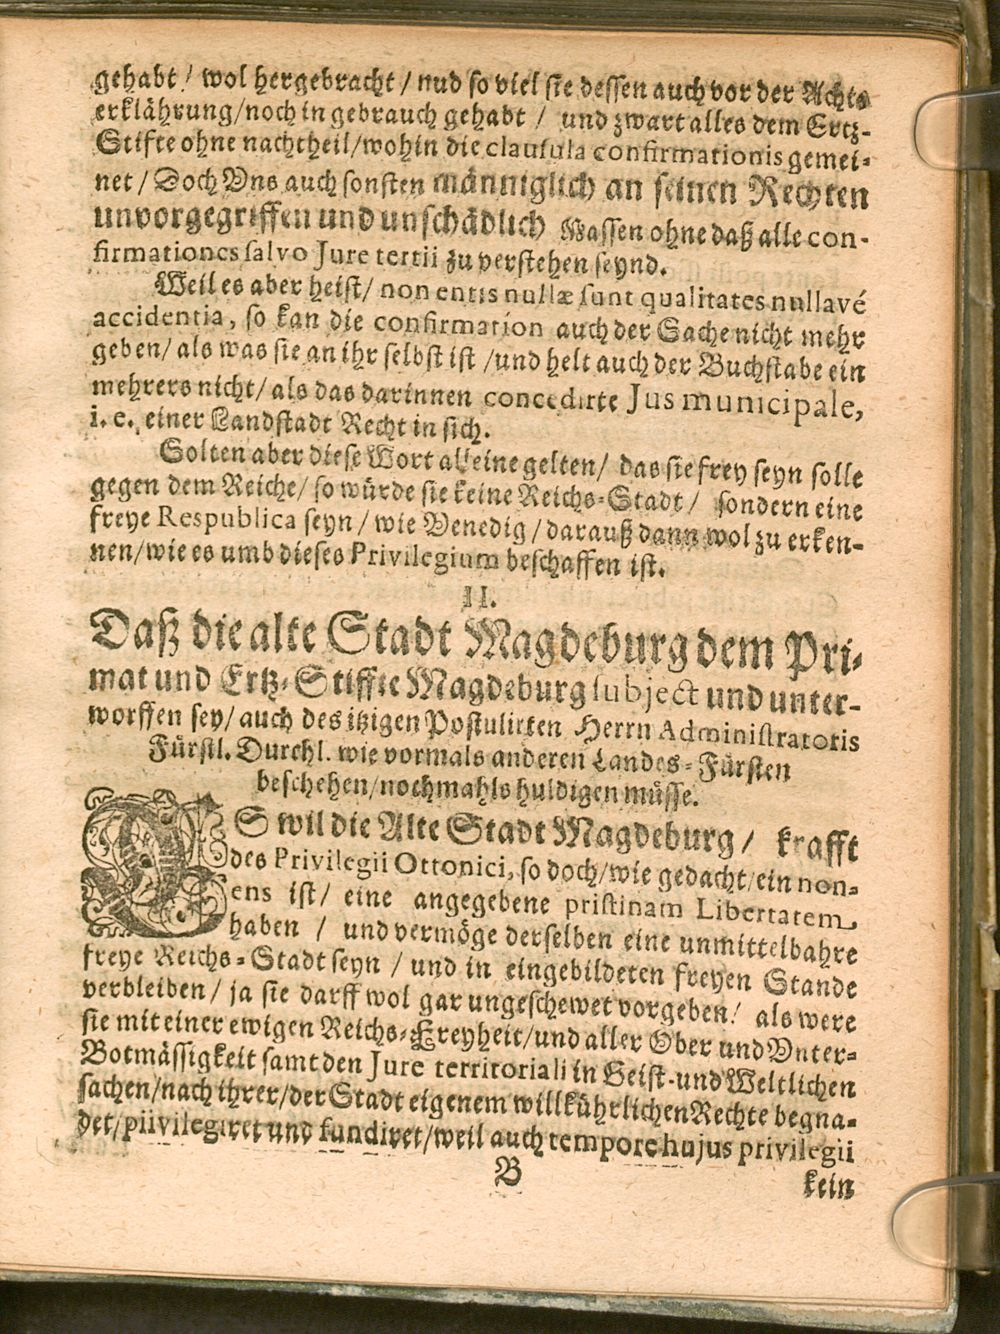 gehabt / wol hergebracht / nud so viel sie dessen auch vor der Achts
erklährung/noch in gebrauch gehabt / und zwart alles dem Ertz-
Stifte ohne nachtheil/wohin die clausula confirmationis gemei-
net / Doch Uns auch sonsten männiglich an seinen Rechten
unvorgegriffen und unschädlich Massen ohne daß alle con-
firmationes salvo Jure tertii zu verstehen seynd.
Weil es aber heist/ non entis nullæ sunt qualitates nullavé
accidentia, so kan die confirmation auch der Sache nicht mehr
geben/ als was sie an ihr selbst ist /und helt auch der Buchstabe ein
mehrers nicht/ als das darinnen concedirte Jus municipale,
i. e. einer Landstadt Recht in sich.
Solten aber diese Wort alleine gelten/ das sie frey seyn solle
gegen dem Reiche/ so würde sie keine Reichs-Stadt/ sondern eine
freye Respublica seyn / wie Venedig / darauß dann wol zu erken-
nen/wie es umb dieses Privilegium beschaffen ist.
II.
Daß die alte Stadt Magdeburg dem Pri-
mat und Ertz-Stiffte Magdeburg subject und unter-
worffen sey/ auch des itzigen Postulirten Herrn Administratoris
Fürstl. Durchl. wie vormals anderen Landes-Fürsten
beschehen/nochmahls huldigen müsse.
ES wil die Alte Stadt Magdeburg / krafft
des Privilegii Ottonici, so doch/wie gedacht/ein non-
ens ist/ eine angegebene pristinam Libertatem
haben / und vermöge derselben eine unmittelbahre
freye Reichs-Stadt seyn / und in eingebildeten freyen Stande
verbleiben/ ja sie darff wol gar ungeschewet vorgeben/ als were
sie mit einer ewigen Reichs-Freyheit/und aller Ober und Unter-
Botmässigkeit samt den Jure territoriali in Geist-und Weltlichen
sachen/nach ihrer/der Stadt eigenem willkührlichen Rechte begna-
det/piivilegiret und fundiret/weil auch tempore hujus privilegii
B
kein